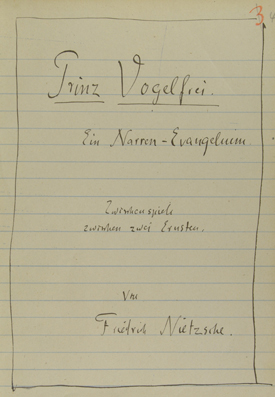 3
Prinz Vogelfrei.
Ein Narren-Evangelium
Zwischenspiele
zwischen zwei Ernsten.
Von
Friedrich Nietzsche.